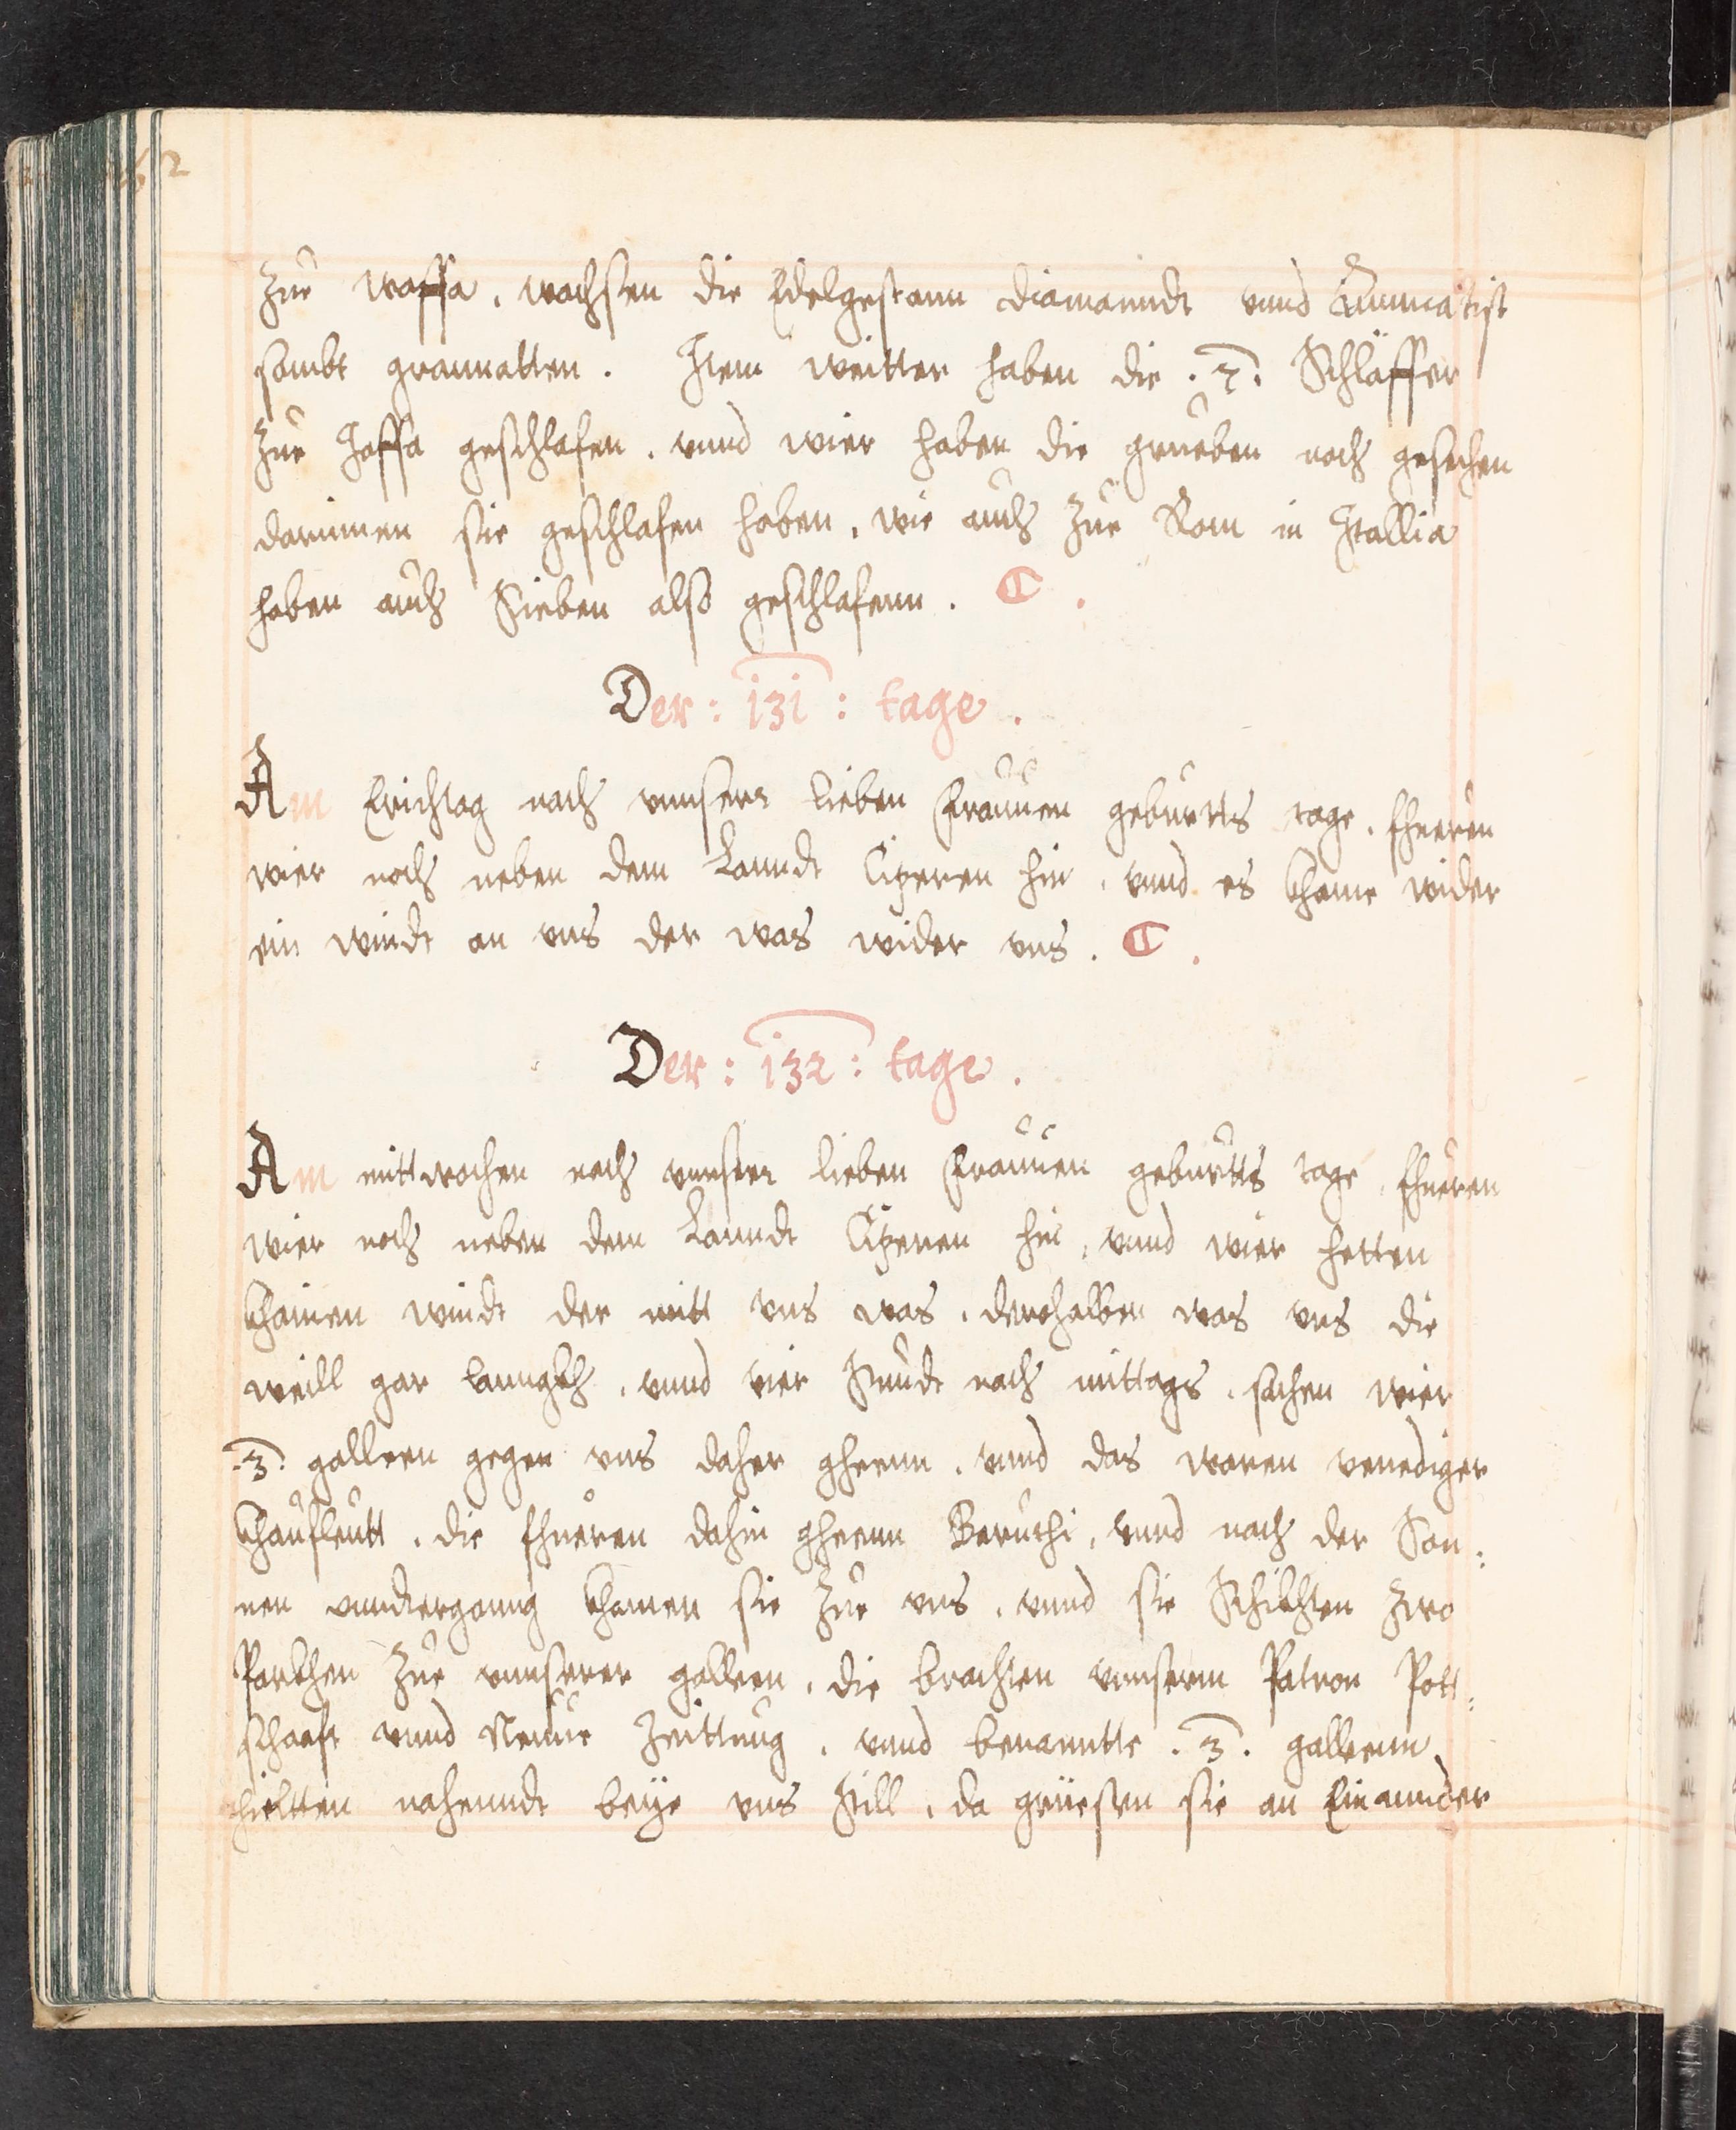 Zur waffa, wachsen die Edelgestann diamanndt vnnd Ammatist
sambt grannatten. Item weitter haben die .7. Schläffer
Zur Jaffa geschlafen, vnnd wier haben die grueben noch gesechen
darinnen sie geschlafen haben, wie auch Zur Rom in Itallia
haben auch Sieben also geschlafenn.
Der : 131 : tage .
Am Erichtag nach vnnserr lieben Frauuen geburtts tage, fhueren
wier noch neben dem Lanndt Cipperen hin, vnnd es khame wider
ein windt an vns der was wider vns.
Der : 132 : tage .
Am mittwochen nach vnnserr lieben Frauuen geburtts tage, fhueren
wier noch neben dem Lanndt Cipperen hin, vnnd wier hetten
khainen windt der mitt vns was, derohalben was vns die
weill gar lanngkh, vnnd vier stundt nach mittags, sachen wier
.3. galleen gegen vns daher gheenn, vnnd das waren venediger
khaufleutt, die fhueren dahin gheenn Baruthi, vnnd nach der Son:
nen vnndterganng khamen sie Zur vns, vnnd sie Schikhten Zwo
Parkhen Zur vnnserer galleen, die brachten vnnserm Patron Pott:
schaft vnnd Neuue Zeittung, vnnd benanntte .3. galleenn
hieltten nahenndt beÿe vns still, da grüesten sie an Einannder